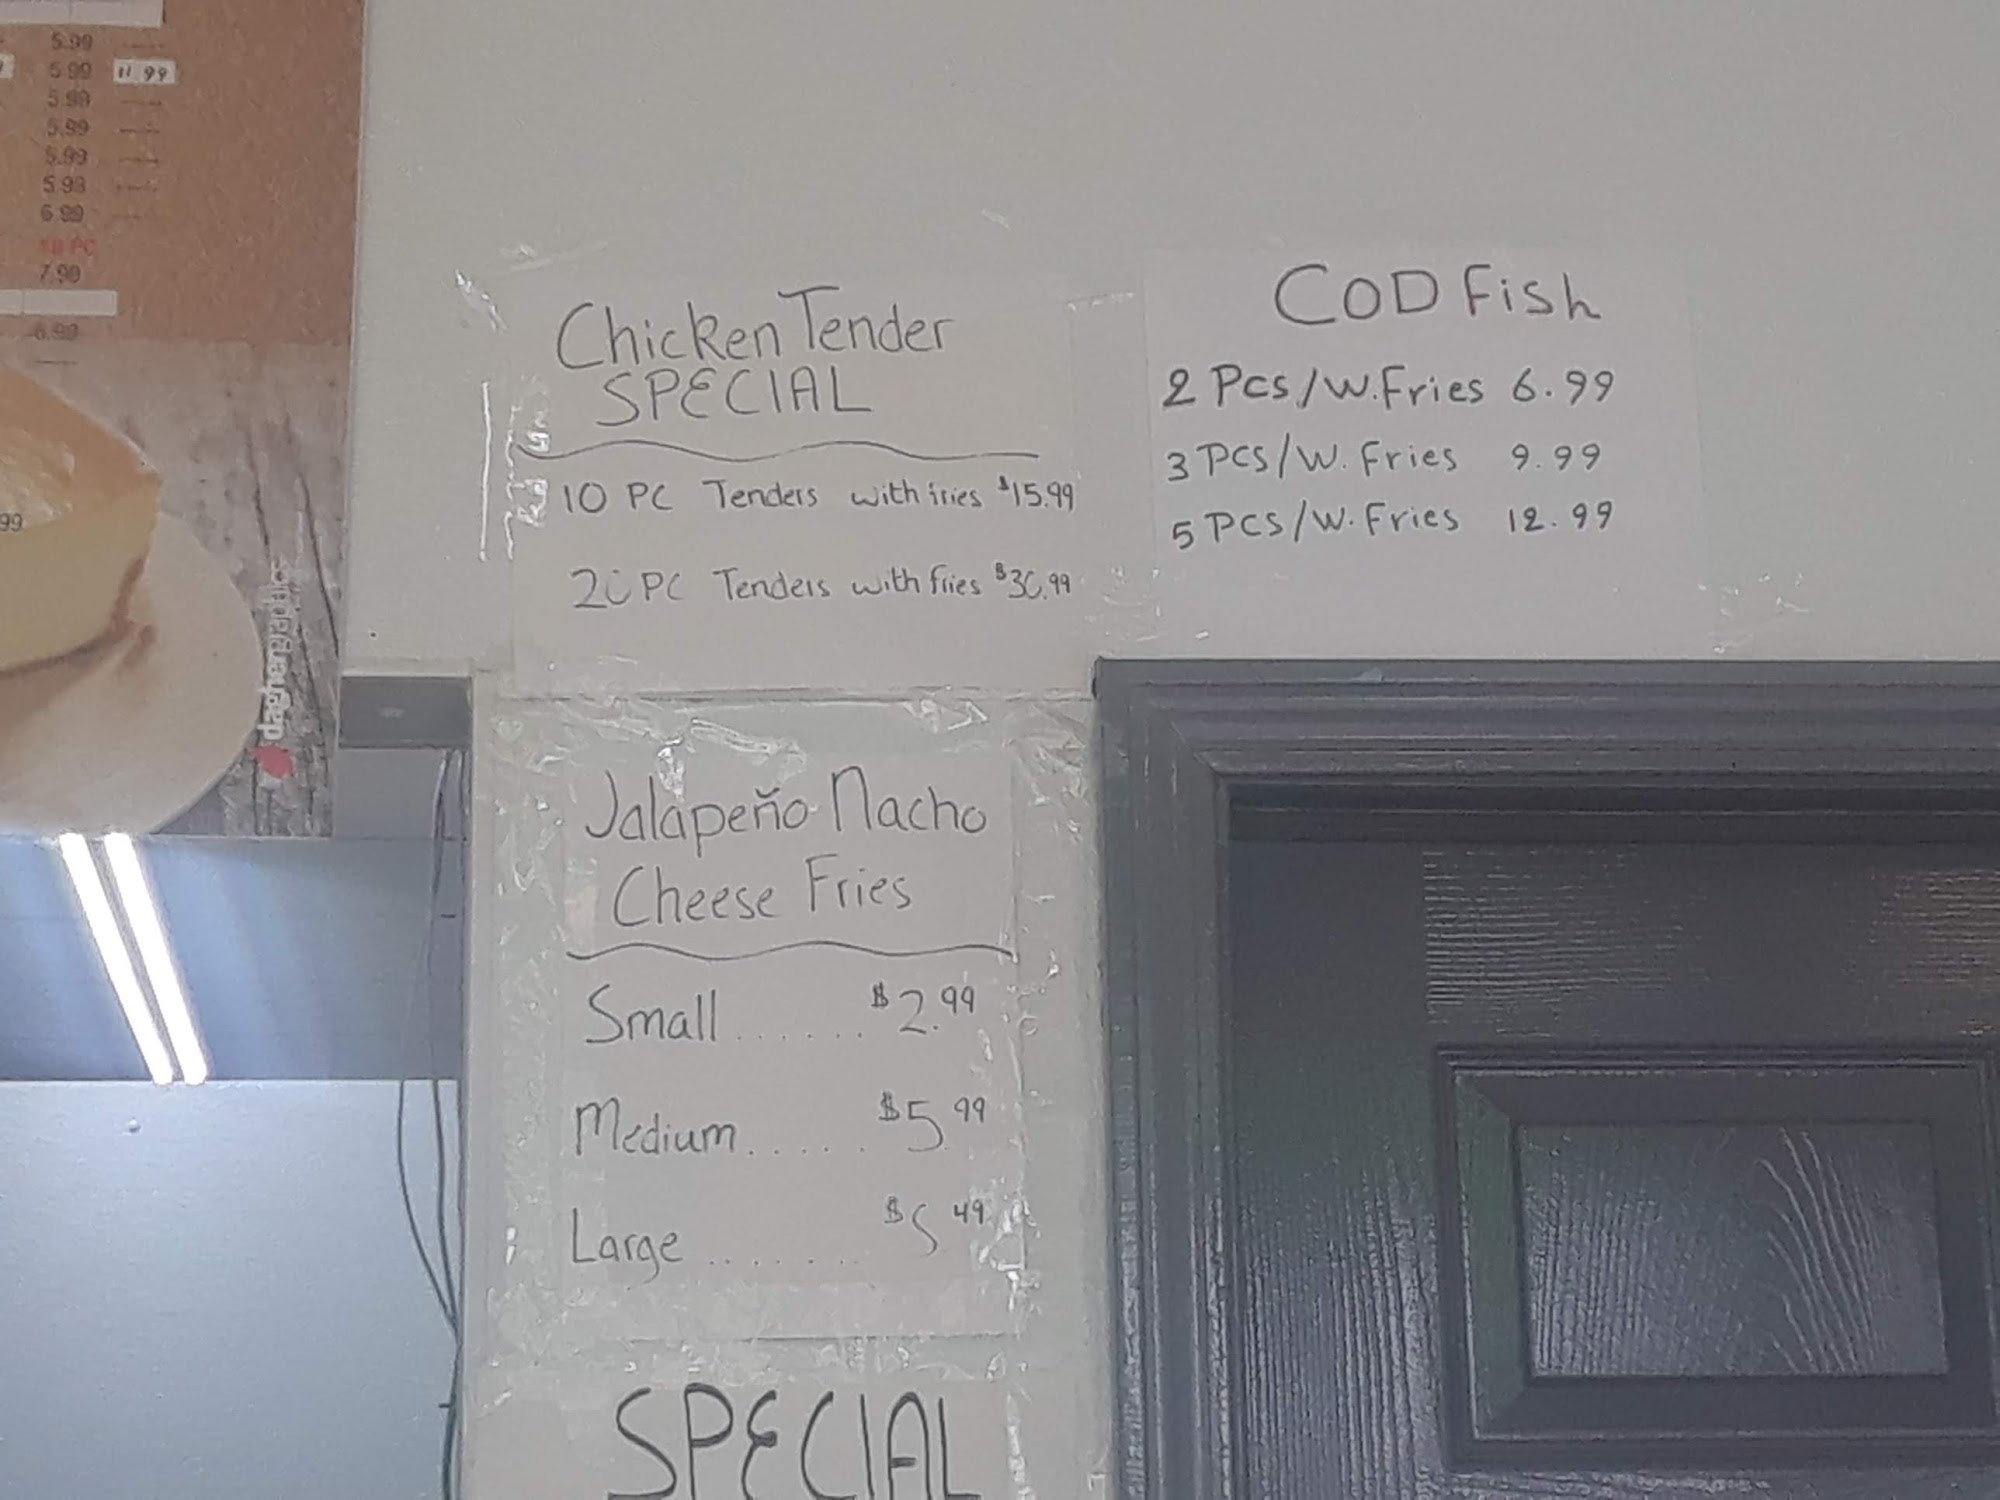 5.99
5.99 11.99
5.99
5.99
5.99
5.99
6.99
10 PC
7.99
6.99
99
daghergraphics
Chicken Tender
SPECIAL
10 PC Tenders with fries $15.99
20 PC Tenders with fries $30.99
COD Fish
2 Pcs/W.Fries 6.99
3 Pcs/W. Fries 9.99
5 Pcs/W. Fries 12.99
Jalapeño Nacho
Cheese Fries
Small ...... $2.99
Medium ..... $5.99
Large ....... $5 49
SPECIAL